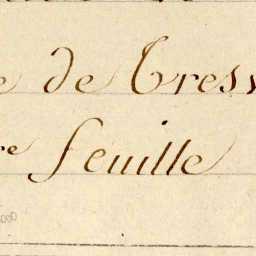 e de Tress
re feuille